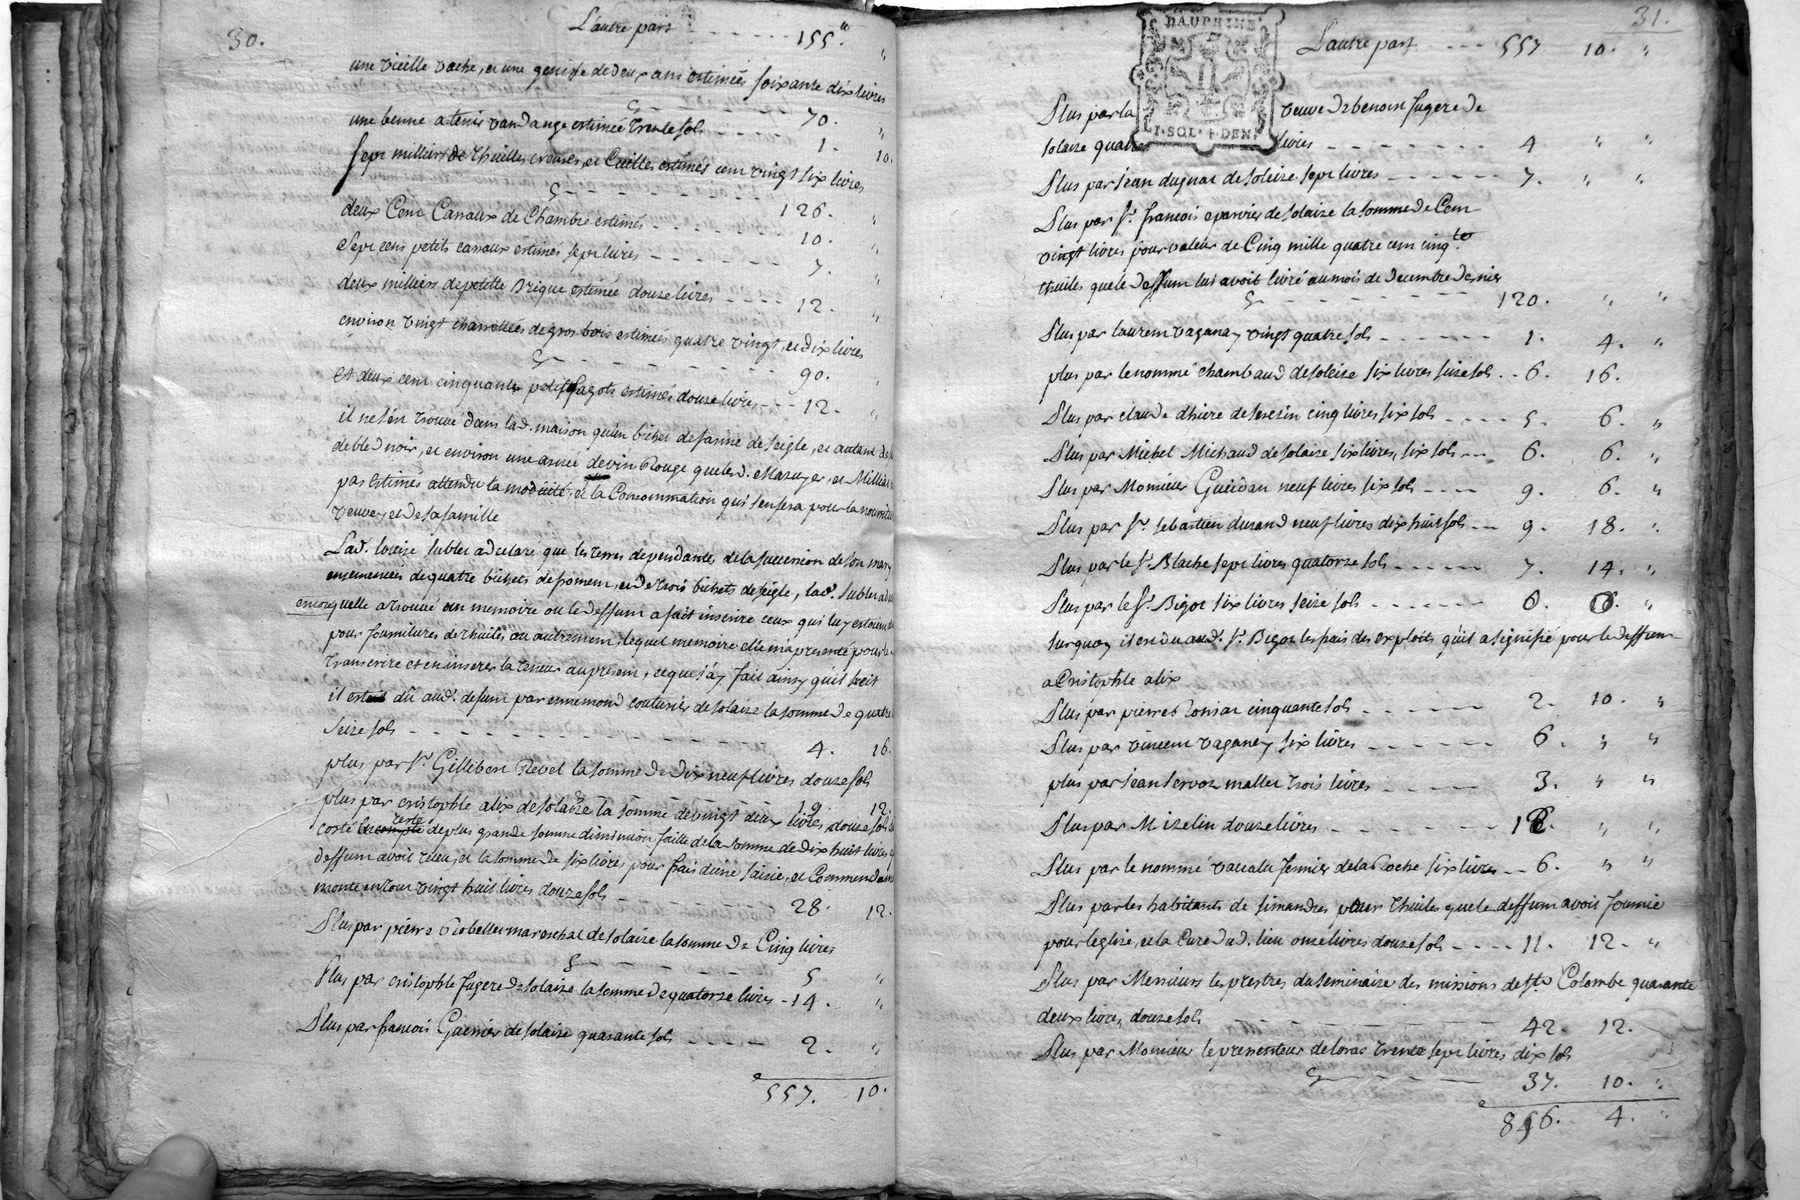 30.
L'autre part - - - - - - 155.
une vieille vache, et une genisse de deux ans estimées soixante dix livres
70.
une benne a tenir vandange estimée trente sols
1. 10.
sept milliers de thuilles creuses, et Cuittes estimés cent vingt six livres
126.
deux Cent Carraux de Chambre estimés - - - - - - 10.
Sept cens petits carraux estimés sept livres - - - - - - 7.
deux milliers de petitte Brique estimée douze livres - - - - 12.
environ vingt charrottées de gros bois estimées quatre vingt, et dix livres
90.
et deux cent cinquante petits fagots estimés douze livres - - - 12.
il ne s'en trouvé dans lad. maison qu'un bichet de farine de seigle, et autant de
de bled noir, et environ une asnée de vin Rouge que led. Mazuyer, et
pas estimés attendu la modicité, et la Consommation qui s'en fera pour la
veuve, et de sa famille
Lad. louise sublet a declaré que les terres dependantes de la succession de son mary
ensemencées de quatre bichets de froment, et de trois bichets de seigle, lad. sublet a
encor quelle a trouvé un memoire ou le deffunt a fait inscrire ceux qui luy estoient
pour fournitures de thuiles, ou autrement, lequel memoire elle m'a presenté pour le
transcrire et en inserer la teneur au present, ce que j'ay fait ainsy qu'il suit
il est dû aud. defunt par ennemond couturier de solaize la somme de quatre
seize sols - - - - - - 4. 16.
plus par Sr. Gillibert Revel la somme de dix neuf livres douze sols
19. 12.
plus par cristophle alix de solaize la somme de vingt deux livres, douze sols
reste de plus grande somme diminution faitte de la somme de dix huit livres
deffunt avoit reçu, et la somme de six livres pour frais d'une saisie, et Commendement
monte en tout vingt huit livres douze sols - - - - - - 28. 12.
Plus par pierre mareschal de solaize la somme de Cinq livres
5
Plus par cristophle fugere de solaize la somme de quatorze livres - 14.
Plus par francois Garnier de solaize quarante sols - - - - 2.
557. 10.
31.
DAUPHINE
1. SOL. 4 DEN.
L'autre part - - - 557 10. "
Plus par la veuve de benoist fugere de
solaize quatre livres - - - - - - - 4 " "
Plus par jean de soleize sept livres - - - - - - 7. " "
Plus par Sr. francois eparvier de solaize la somme de Cent
vingt livres pour valeur de Cinq mille quatre cent cinqte
thuiles que le deffunt lui avoit livré au mois de decembre dernier
120. " "
Plus par laurent vaganay vingt quatre sols - - - - - - 1. 4. "
plus par le nommé chambaud de soleize six livres seize sols - - 6. 16.
Plus par claude dhiere de seresin cinq livres six sols - - - - 5. 6. "
Plus par Michel Michaud de solaize six livres, six sols - - - 6. 6. "
Plus par Monsieur Gueidan neuf livres six sols - - - - 9. 6. "
Plus par Sr. sebastien durand neuf livres dix huit sols - - 9. 18. "
Plus par le Sr. Blache sept livres quatorze sols - - - - - 7. 14. "
Plus par le Sr. Bigot six livres seize sols - - - - - - 6. 16. "
surquoy il est du aud. Sr. Bigot les frais des exploits qu'il a signifié pour le deffunt
a Cristophle alix
Plus par pierre cinquante sols - - - - - - 2. 10. "
Plus par vincent vaganey six livres - - - - - - 6. " "
plus par jean servoz mallet trois livres - - - - - - 3. " "
Plus par Mizelin douze livres - - - - - - 12. " "
Plus par le nommé fermier de la Roche six livres - - 6. " "
Plus par les habitants de simandres pour thuiles que le deffunt avoit fournie
pour l'eglise, et la Cure dud. lieu onze livres douze sols - - - - 11. 12. "
Plus par Messieurs les prestres du seminaire des missions de Ste Colombe quarante
deux livres, douze sols - - - - - - 42. 12.
Plus par Monsieur le presenteur de loras trente sept livres dix sols
37. 10. "
856. 4. "